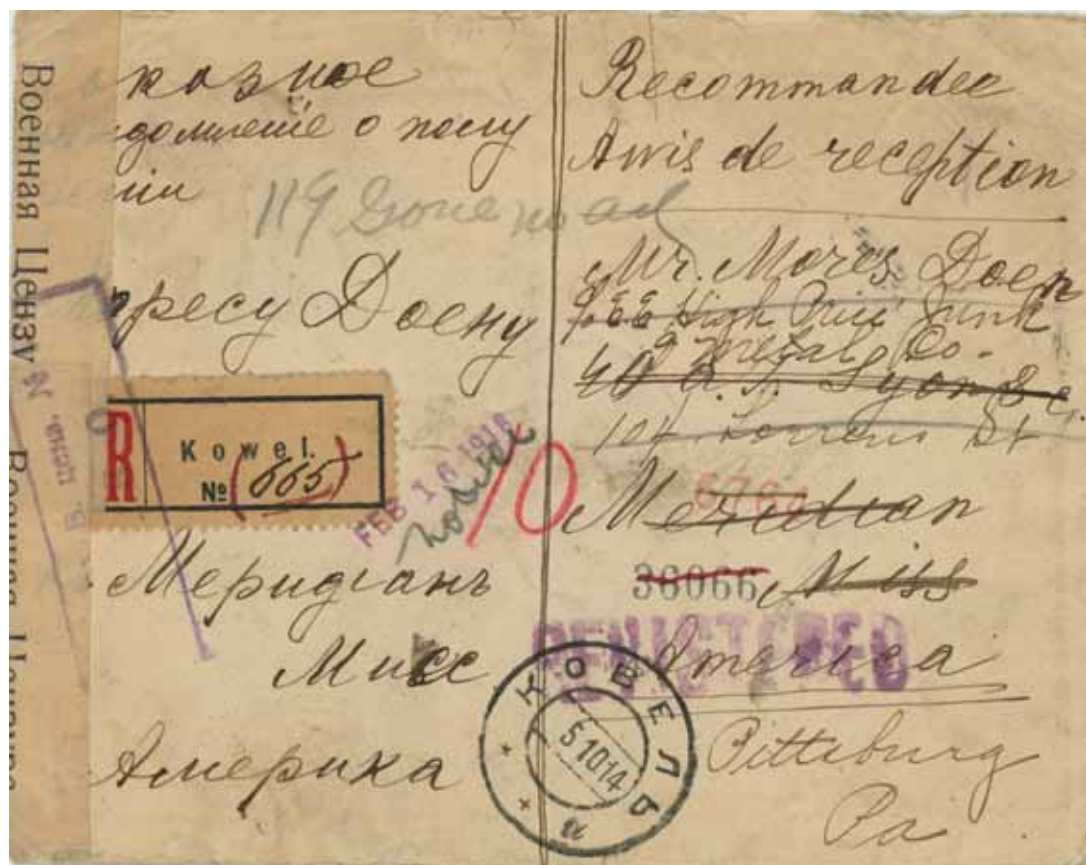 Военная Цензу
казное
домленіе о полу
ніи
119
ресу Доену
R
Kowel.
№ (665)
FEB 16 1916
10
Меридіанъ
Мисс
Америка
КОВЕЛЬ
5 10 14
Recommandee
Avis de reception
Mr. Mores Doen
High Price Junk
& Metal Co.
Lyons
St
Meridian
36066 Miss
REGISTERED
America
Pittsburg
Pa.